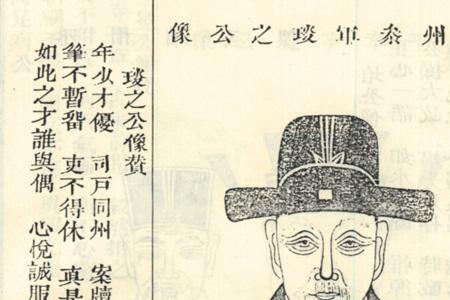 州叅軍琰之公像
琰之公像贊
年少才優 司戶同州 案牘
筆不暫畱 吏不得休 真是
如此之才誰與偶 心悅誠服